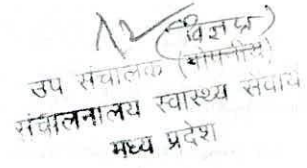 (विज्ञप्त)
उप संचालक (गोपनीय)
संचालनालय स्वास्थ्य सेवायें
मध्य प्रदेश